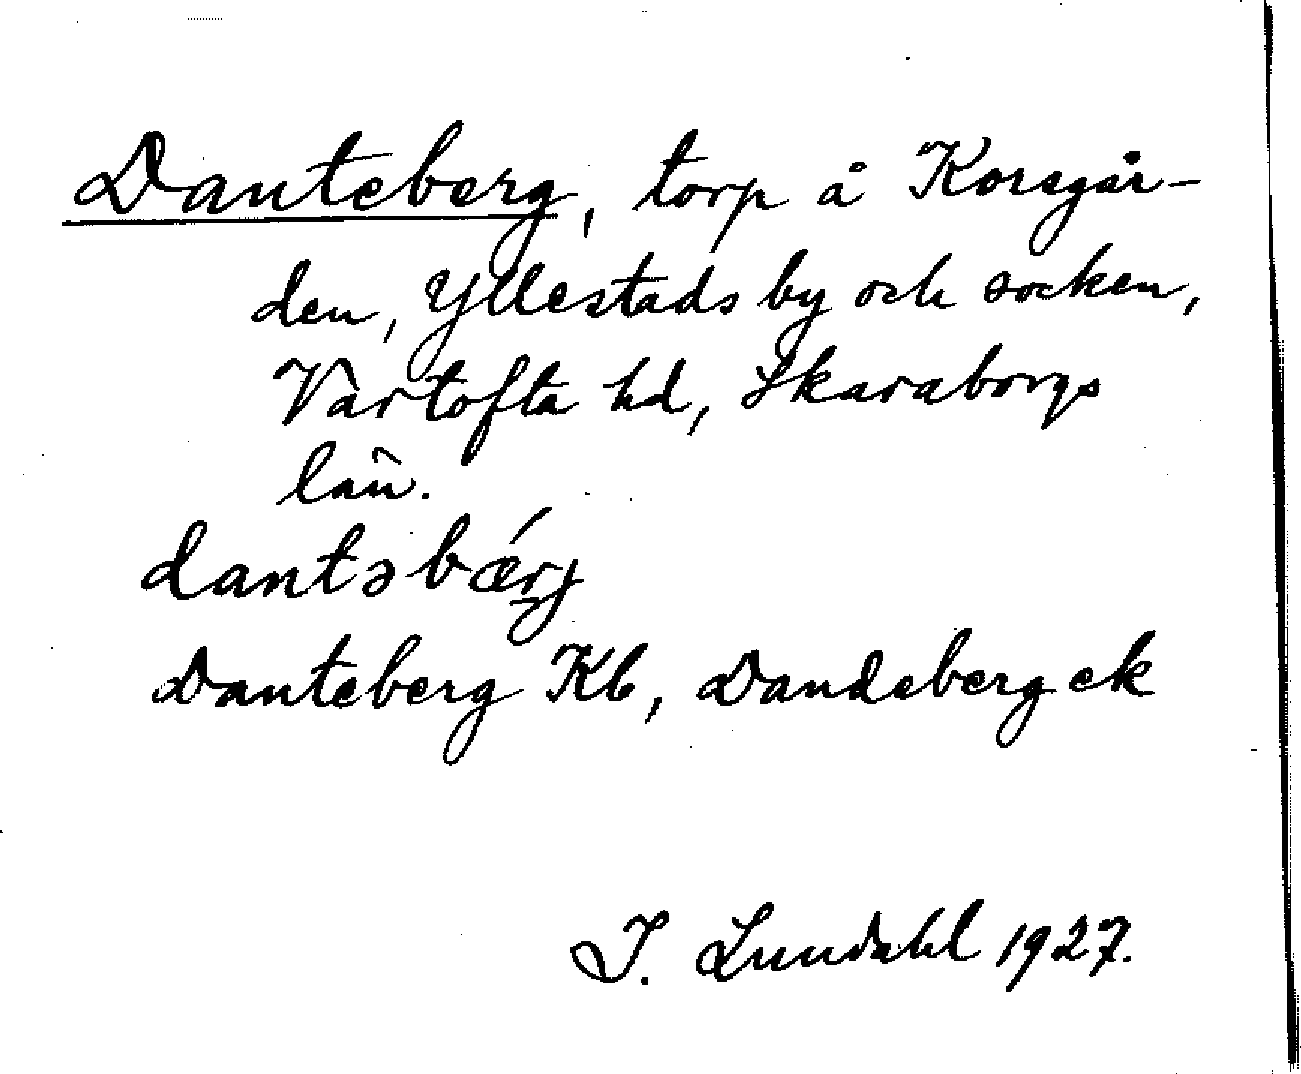 Danteberg, torp å Korsgår-
den, Yllestads by och socken,
Vartofta hd, Skaraborgs
län.
dantəbǽrj
Danteberg Kb, Dandeberg ek
I. Lundahl 1927.